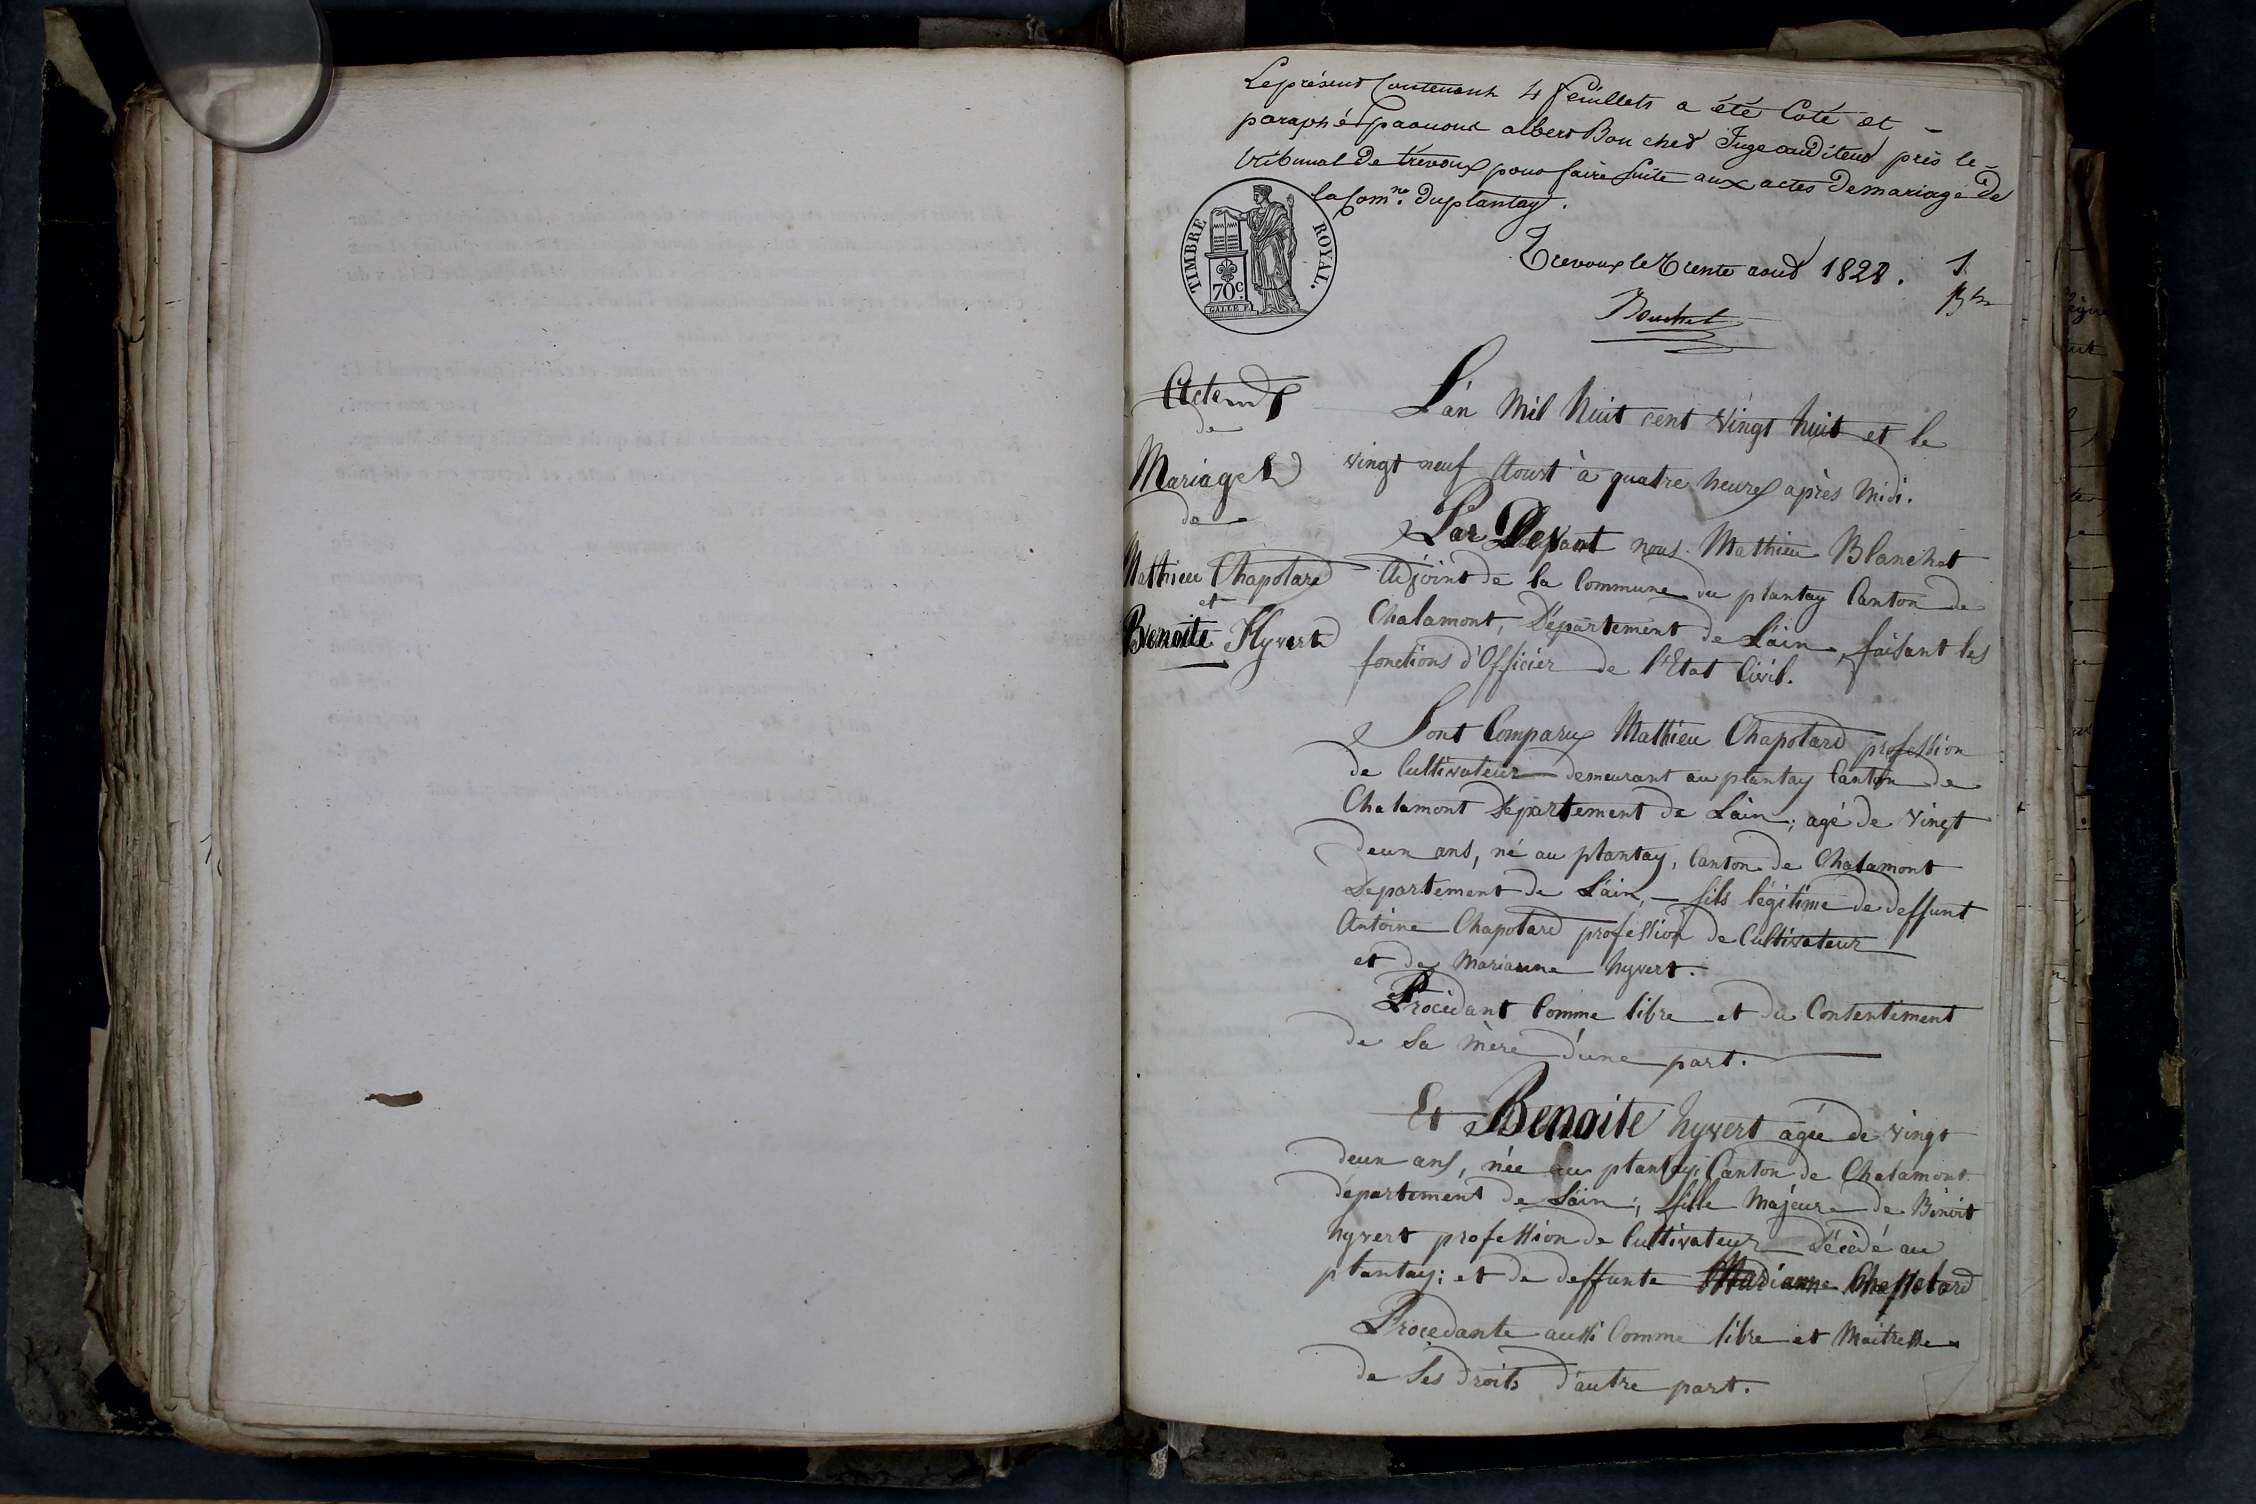 Le présent Contenant 4 feuillets a été Coté et
paraphé par nous albert Bouchet Juge auditeur près le
tribunal de trévoux pour faire suite aux actes de mariage de
la Com.ne du plantay.
Trevoux le trente aout 1828.
1
Bouchet
TIMBRE ROYAL.
70c.
GALLE F.
Acte
de
Mariage
de
Mathieu Chapolard
et
Benoite Hyvert
L'an Mil huit cent vingt huit et le
vingt neuf Aoust à quatre heures après midi.
Par Devant nous Mathieu Blanchet
Adjoint de la Commune du plantay Canton de
Chalamont, Département de L'ain, faisant les
fonctions d'Officier de l'Etat Civil.
Sont Comparus Mathieu Chapolard profession
de Cultivateur demeurant au plantay Canton de
Chalamont Département de L'ain; agé de vingt
deux ans, né au plantay, Canton de Chalamont
Département de L'ain, fils légitime de deffunt
Antoine Chapolard profession de Cultivateur
et de Marianne hyvert.
Procédant Comme libre et du Consentement
de Sa mère d'une part.
Et Benoite hyvert agée de vingt
deux ans, née au plantay; Canton de Chalamont
département de L'ain; fille Majeure de Bénoit
hyvert profession de Cultivateur Décédé au
plantay; et de deffunte Marianne Chapolard
Procedante aussi Comme libre et Maitresse
de Ses droits d'autre part.